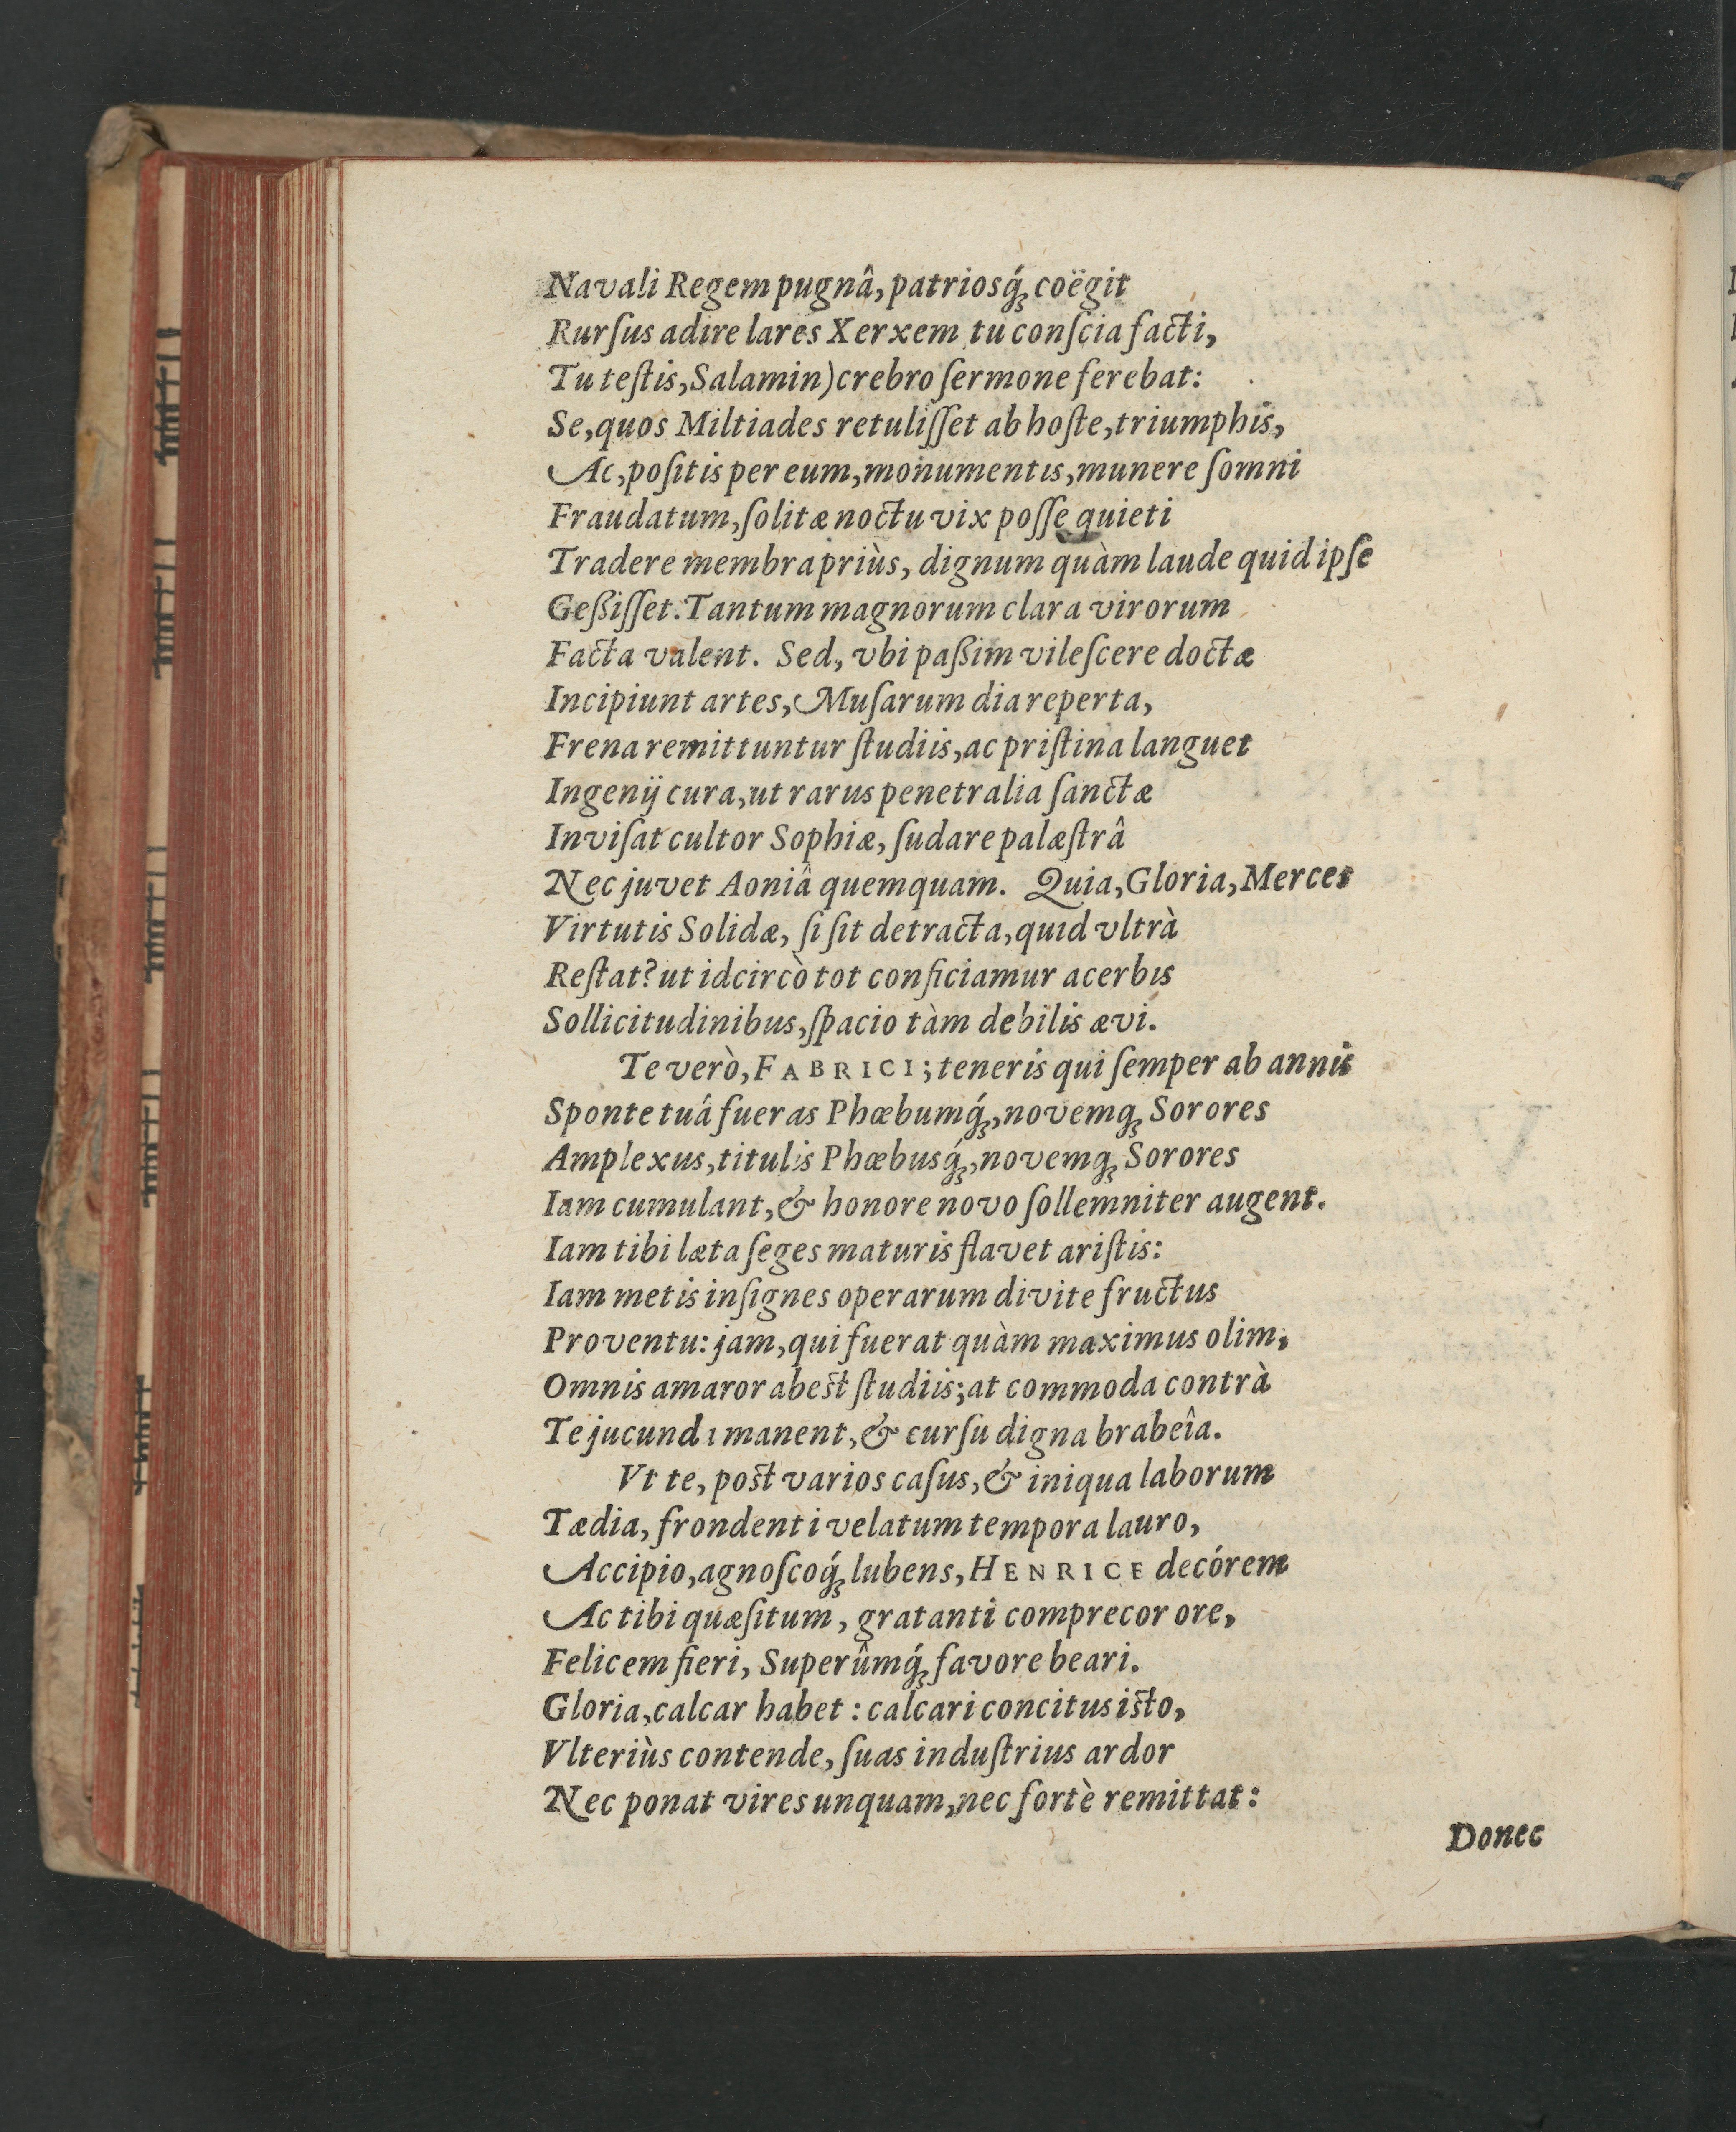 Navali Regem pugnâ, patriosq́ꝫ coëgit
Rurſus adire lares Xerxem tu conſcia facti,
Tu teſtis, Salamin) crebro ſermone ferebat:
Se, quos Miltiades retuliſſet ab hoſte, triumphis,
Ac, poſitis per eum, monumentis, munere ſomni
Fraudatum, ſolitæ noctu vix poſſe quieti
Tradere membra priùs, dignum quàm laude quid ipſe
Geßiſſet. Tantum magnorum clara virorum
Facta valent. Sed, vbi paßim vileſcere doctæ
Incipiunt artes, Muſarum dia reperta,
Frena remittuntur ſtudiis, ac priſtina languet
Ingenij cura, ut rarus penetralia ſanctæ
Inviſat cultor Sophiæ, ſudare palæſtrâ
Nec juvet Aoniâ quemquam. Quia, Gloria, Merces
Virtutis Solidæ, ſi ſit detracta, quid vltrà
Reſtat? ut idcircò tot conficiamur acerbis
Sollicitudinibus, ſpacio tàm debilis ævi.
Te verò, FABRICI; teneris qui ſemper ab annis
Sponte tuâ fueras Phœbumq́ꝫ, novemqꝫ Sorores
Amplexus, titulis Phœbusq́ꝫ, novemqꝫ Sorores
Iam cumulant, & honore novo ſollemniter augent.
Iam tibi læta ſeges maturis flavet ariſtis:
Iam metis inſignes operarum divite fructus
Proventu: jam, qui fuerat quàm maximus olim,
Omnis amaror abest ſtudiis; at commoda contrà
Te jucundi manent, & curſu digna brabeîa.
Vt te, post varios caſus, & iniqua laborum
Tædia, frondenti velatum tempora lauro,
Accipio, agnoſcoq́ꝫ lubens, HENRICE decórem
Ac tibi quæſitum, gratanti comprecor ore,
Felicem fieri, Superûmq́ꝫ favore beari.
Gloria, calcar habet: calcari concitus isto,
Vlteriùs contende, ſuas induſtrius ardor
Nec ponat vires unquam, nec fortè remittat:
Donec